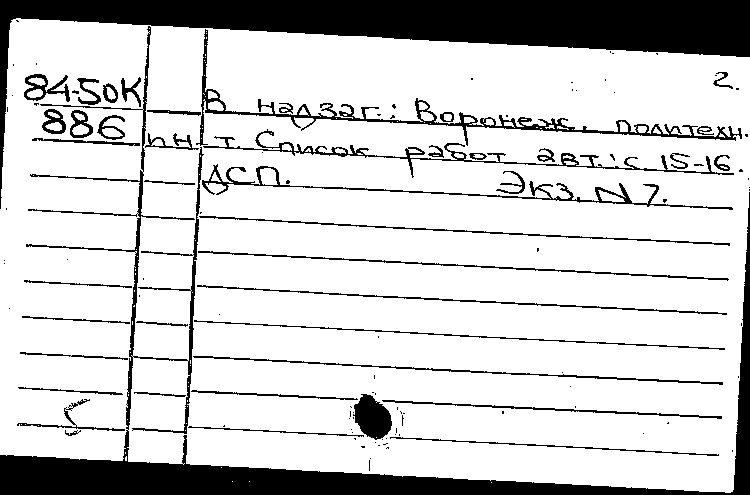 2.
84-50К В надзаг.: Воронеж. политехн.
886 ин-т. Список работ авт.: с. 15-16.
ДСП. Экз. N 7.
5